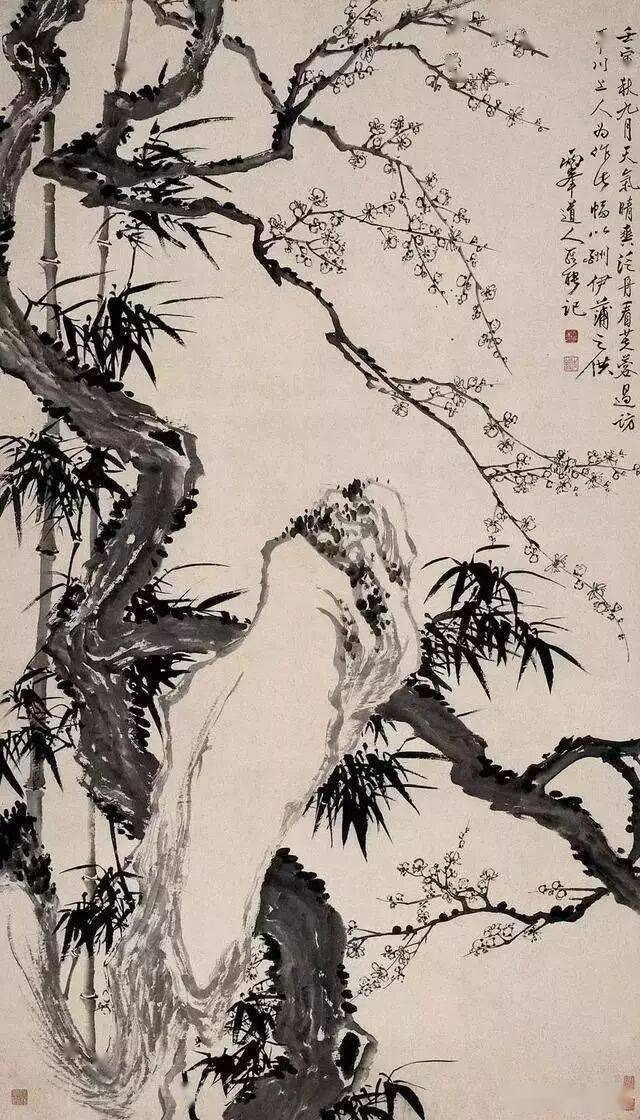 壬寅秋九月天氣晴爽泛舟看芙蓉過訪
川上人為作此幅以酬伊蒲之供
兩峯道人羅聘記